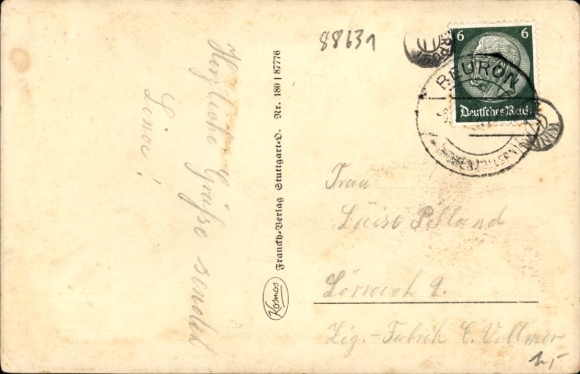 Herzliche Grüße sendet
Lina!
88631
6 6
Deutsches Reich
BEURON
(HOHENZOLLERN)
Franckh-Verlag Stuttgart-O. Nr. 180 | 87776
Kosmos
Frau
Luise
Lörrach
Zig.-Fabrik C. Vollmer